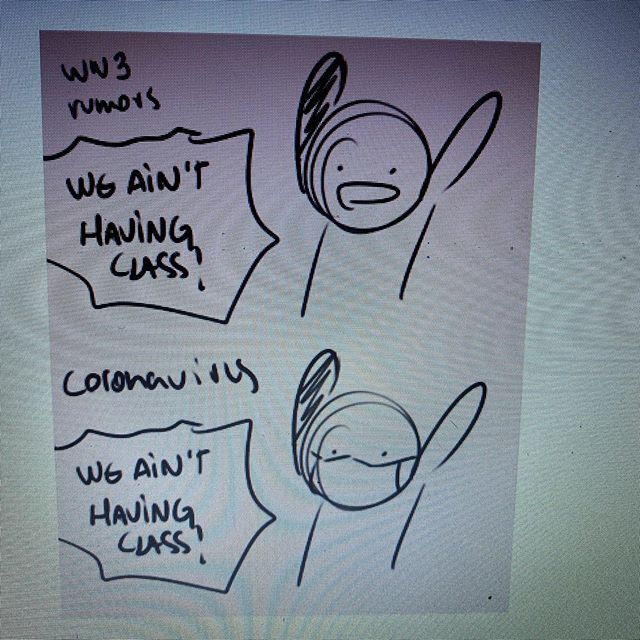 WW3
rumors
WE AIN'T
HAVING
CLASS!
coronavirus
WE AIN'T
HAVING
CLASS!